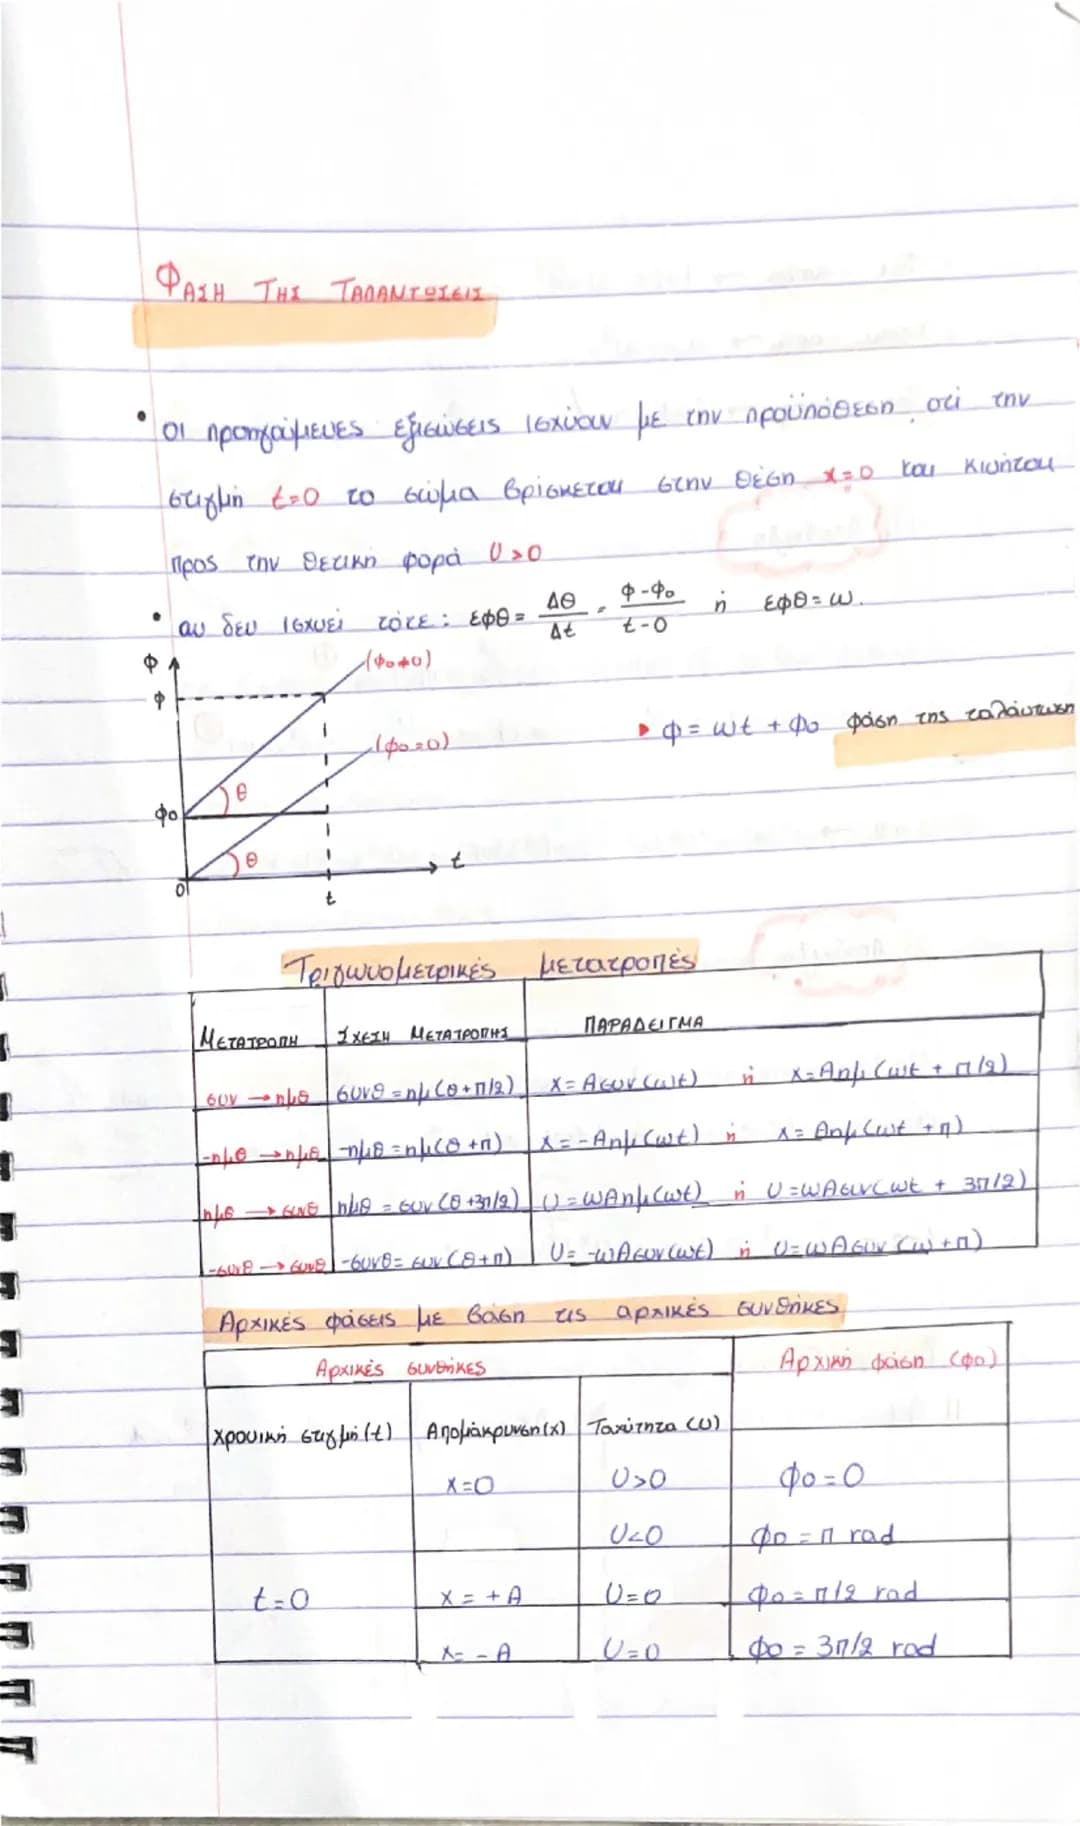 ΦΑΣΗ ΤΗΣ ΤΑΛΑΝΤΩΣΕΙΣ
• οι προηγούμενες εξισώσεις ισχύουν με την προϋπόθεση οτι την
στιγμή t=0 το σώμα βρίσκεται στην θέση x=0 και κινήται
προς την θετική φορά υ>0
• αν δεν ισχύει τότε: εφθ = Δθ/Δt = φ-φ₀/t-0 ή εφθ=ω.
Φ
(φ₀≠0)
φ
▸ φ = ωt + φ₀ φάση της ταλάντωση
(φ₀=0)
θ
φ₀
θ
t
0
t
Τριγωνομετρικές μετατροπές
ΜΕΤΑΤΡΟΠΗ ΣΧΕΣΗ ΜΕΤΑΤΡΟΠΗΣ ΠΑΡΑΔΕΙΓΜΑ
συν → ημθ συνθ = ημ(θ+π/2) x = Aσυν(ωt) ή x=Aημ(ωt + π/2)
-ημθ → ημθ -ημθ = ημ(θ+π) x = -Aημ(ωt) ή x= Aημ(ωt +π)
ημθ → συνθ ημθ = συν(θ+3π/2) υ=ωAημ(ωt) ή υ=ωAσυν(ωt + 3π/2)
-συνθ → συνθ -συνθ= συν(θ+π) υ= -ωAσυν(ωt) ή υ=ωAσυν(ω+π)
Αρχικές φάσεις με βάση τις αρχικές συνθήκες
Αρχικές συνθήκες Αρχική φάση (φ₀)
Χρονική στιγμή (t) Απομάκρυνση (x) Ταχύτητα (υ)
x=0 υ>0 φ₀=0
υ<0 φ₀ = π rad
t=0 x = +A υ=0 φ₀=π/2 rad
x= -A υ=0 φ₀ = 3π/2 rad